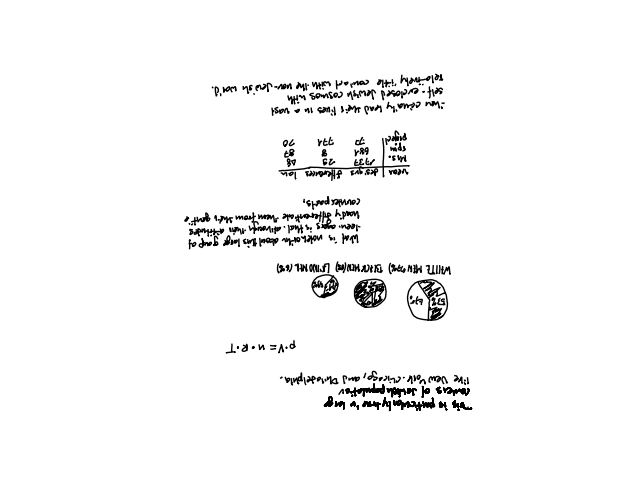 This is particularly true in large
centers of Jewish population
like New York, Chicago, and Philadelphia.
p·V = n·R·T
67%
WHITE MEN BLACK MEN LATINO MEN (6%)
What is noteworthy about this large group of
teen-agers is that although their attitudes
hardly differentiate them from their gentile
counterparts,
near designs differences Ian
Mrs. 1737 25 68
spin 681 8 87
77 771 70
they actually lead their lives in a vast
self-enclosed Jewish cosmos with
relatively little contact with the non-Jewish world.